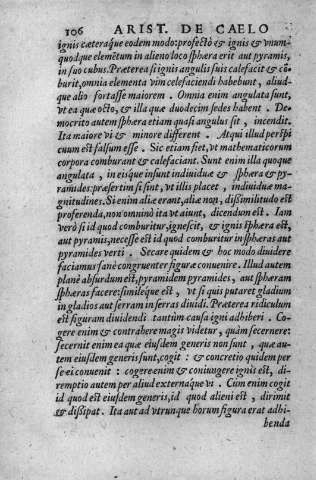 106 ARIST. DE CAELO
ignis cæteraque eodem modo: profectò & ignis & vnum-
quodque elemẽtum in alieno loco sphæra erit aut pyramis,
in suo cubus. Præterea si ignis angulis suis calefacit & cõ-
burit, omnia elementa vim celefaciendi habebunt, aliud-
que alio fortasse maiorem. Omnia enim angulata sunt,
vt ea quæ octo, & illa quæ duodecim sedes habent. De-
mocrito autem sphæra etiam quasi angulus sit, incendit.
Ita maiore vi & minore different. Atqui illud perspi
cuum est falsum esse. Sic etiam fiet, vt mathematicorum
corpora comburant & calefaciant. Sunt enim illa quoque
angulata, in eisque insunt indiuiduæ & sphæra & py-
ramides: præsertim si sint, vt illis placet, indiuiduæ ma-
gnitudines. Si enim aliæ erant, aliæ non, dißimilitudo est
proferenda, non omninò ita vt aiunt, dicendum est. Iam
verò si id quod comburitur, ignescit, & ignis sphæra est,
aut pyramis, necesse est id quod comburitur in sphæras aut
pyramides verti. Secare quidem & hoc modo diuidere
faciamus sanè congruenter figuræ conuenire. Illud autem
planè absurdum est, pyramidem pyramides, aut sphæram
sphæras facere: simileque est, vt si quis putaret gladium
in gladios aut serram in serras diuidi. Præterea ridiculum
est figuram diuidendi tantùm causa igni adhiberi. Co-
gere enim & contrahere magis videtur, quàm secernere:
secernit enim ea quæ eiusdem generis non sunt, quæ au-
tem eiusdem generis sunt, cogit: & concretio quidem per
se ei conuenit: cogere enim & coniungere ignis est, di-
remptio autem per aliud externaque vi. Cùm enim cogit
id quod est eiusdem generis, id quod alieni est, dirimit
& dißipat. Ita aut ad vtrunque horum figura erat adhi-
benda